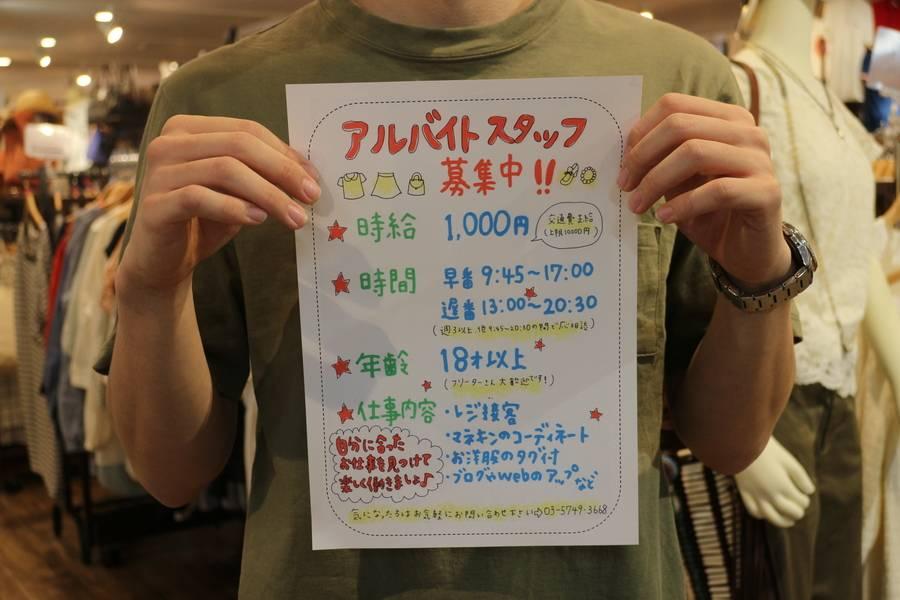 アルバイトスタッフ
募集中!!
時給 1,000円
交通費支給
(上限10000円)
時間 早番 9:45~17:00
遅番 13:00~20:30
(週3以上、他9:45~20:30の間で応相談)
年齢 18才以上
(フリーターさん大歓迎です!)
仕事内容 ・レジ接客
・マネキンのコーディネート
・お洋服のタグ付
・ブログやwebのアップなど
自分に合った
お仕事を見つけて
楽しく働きましょ♪
気になった方はお気軽にお問い合わせ下さい⇨03-5749-3668